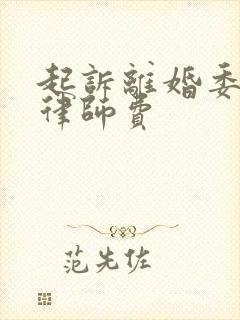 起訴離婚委
律師費
范先佐